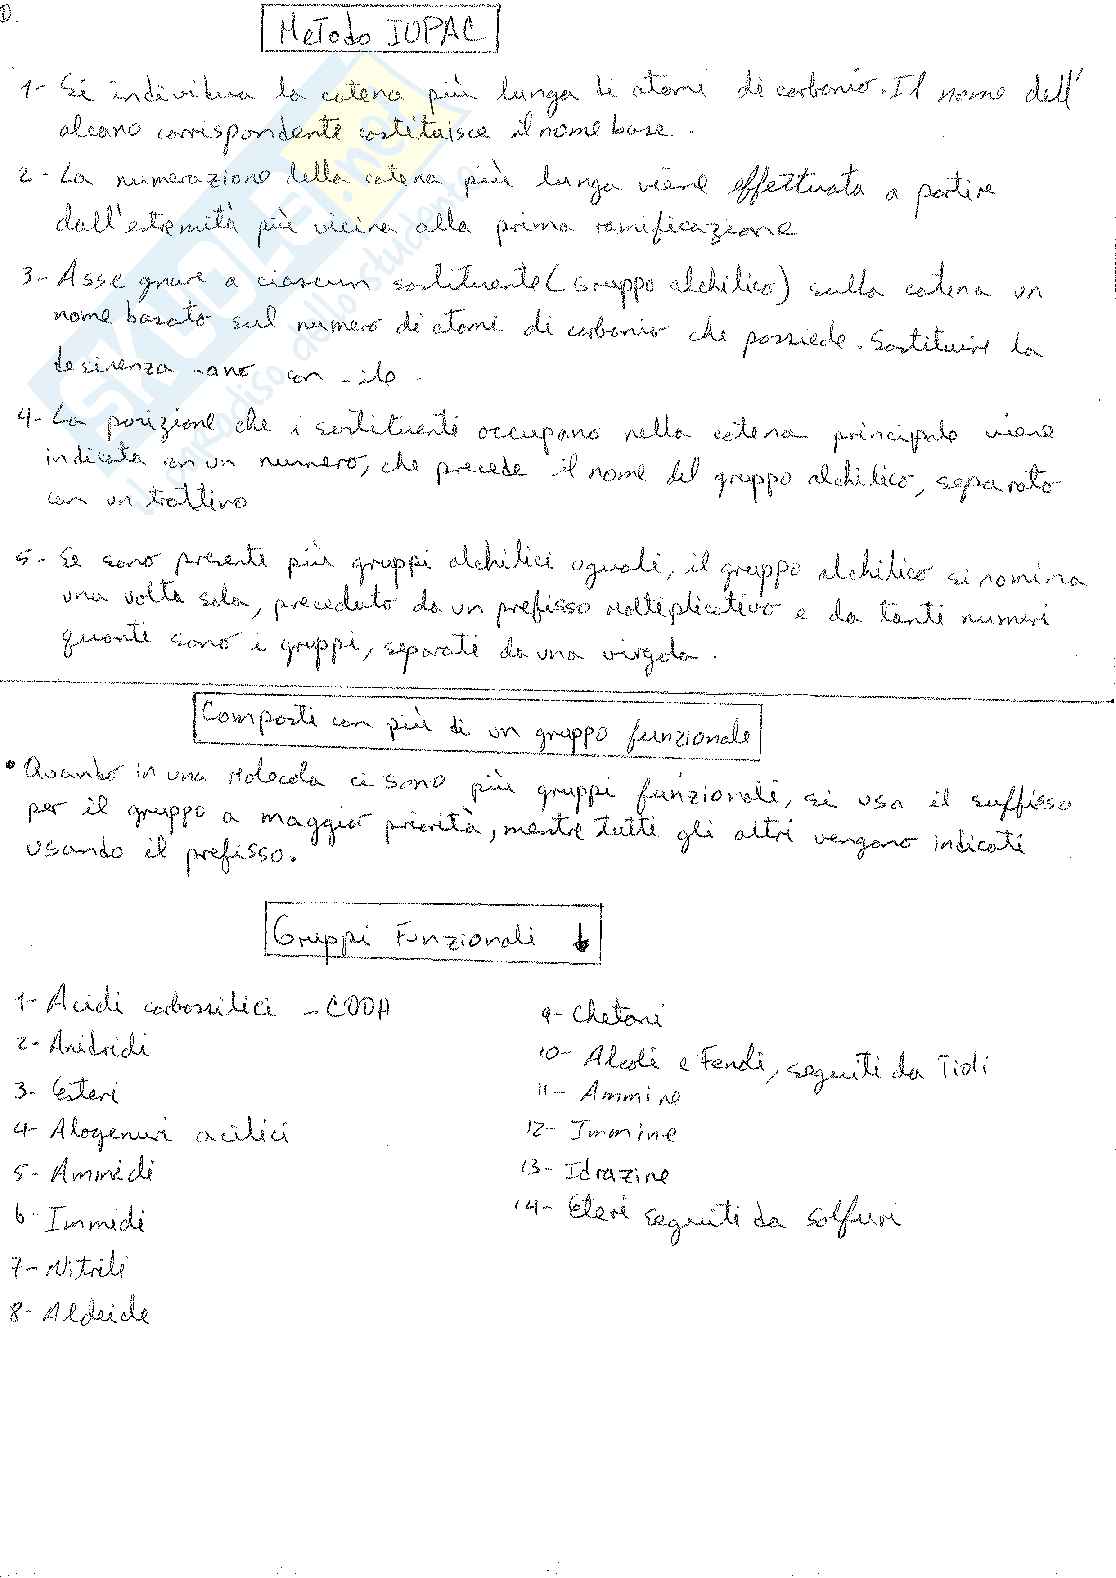 1.
Metodo IUPAC
1- Si individua la catena più lunga di atomi di carbonio. Il nome dell'
alcano corrispondente costituisce il nome base.
2- La numerazione della catena più lunga viene effettuata a partire
dall'estremità più vicina alla prima ramificazione
3- Assegnare a ciascun sostituente (gruppo alchilico) sulla catena un
nome basato sul numero di atomi di carbonio che possiede. Sostituire la
desinenza -ano con -ile.
4- La posizione che i sostituenti occupano nella catena principale viene
indicata con un numero, che precede il nome del gruppo alchilico, separato
con un trattino
5- Se sono presenti più gruppi alchilici uguali, il gruppo alchilico si nomina
una volta sola, preceduto da un prefisso molteplicativo e da tanti numeri
quanti sono i gruppi, separati da una virgola.
Composti con più di un gruppo funzionale
• Quando in una molecola ci sono più gruppi funzionali, si usa il suffisso
per il gruppo a maggior priorità, mentre tutti gli altri vengono indicati
usando il prefisso.
Gruppi Funzionali ↓
1- Acidi carbossilici -COOH
2- Anidridi
3- Esteri
4- Alogenuri acilici
5- Ammidi
6- Immidi
7- Nitrili
8- Aldeide
9- Chetoni
10- Alcoli e Fenoli, seguiti da Tioli
11- Ammine
12- Immine
13- Idrazine
14- Eteri seguiti da solfuri